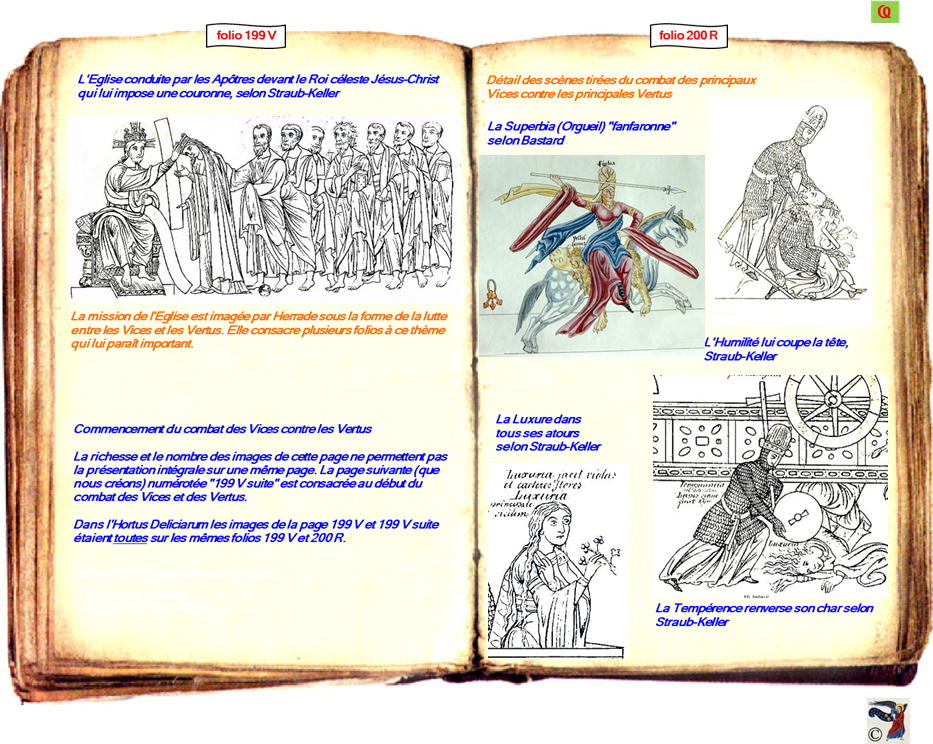 folio 199 V
L'Eglise conduite par les Apôtres devant le Roi céleste Jésus-Christ
qui lui impose une couronne, selon Straub-Keller
La mission de l'Eglise est imagée par Herrade sous la forme de la lutte
entre les Vices et les Vertus. Elle consacre plusieurs folios à ce thème
qui lui paraît important.
Commencement du combat des Vices contre les Vertus
La richesse et le nombre des images de cette page ne permettent pas
la présentation intégrale sur une même page. La page suivante (que
nous créons) numérotée "199 V suite" est consacrée au début du
combat des Vices et des Vertus.
Dans l'Hortus Deliciarum les images de la page 199 V et 199 V suite
étaient toutes sur les mêmes folios 199 V et 200 R.
folio 200 R
Détail des scènes tirées du combat des principaux
Vices contre les principales Vertus
La Superbia (Orgueil) "fanfaronne"
selon Bastard
L'Humilité lui coupe la tête,
Straub-Keller
La Luxure dans
tous ses atours
selon Straub-Keller
Luxuria jacit violas
et cæteros flores
Luxuria
principale
La Tempérence renverse son char selon
Straub-Keller
©